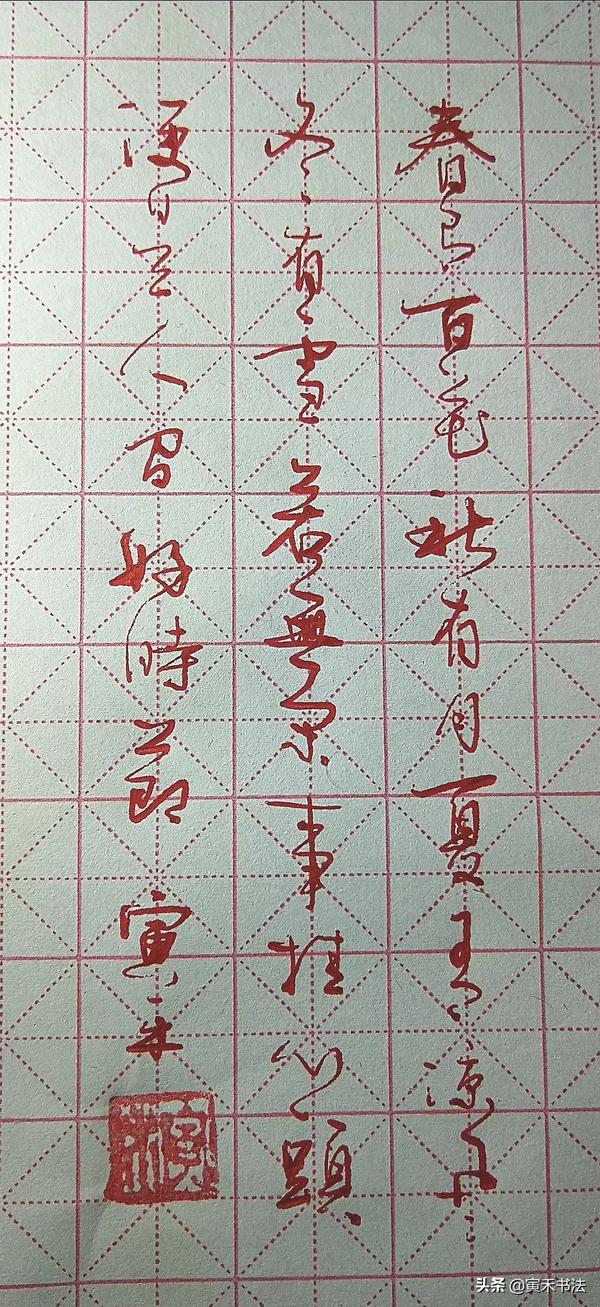 春有百花秋有月夏有凉風
冬有雪若無閑事挂心頭
便是人間好時節 寅禾
头条 @寅禾书法